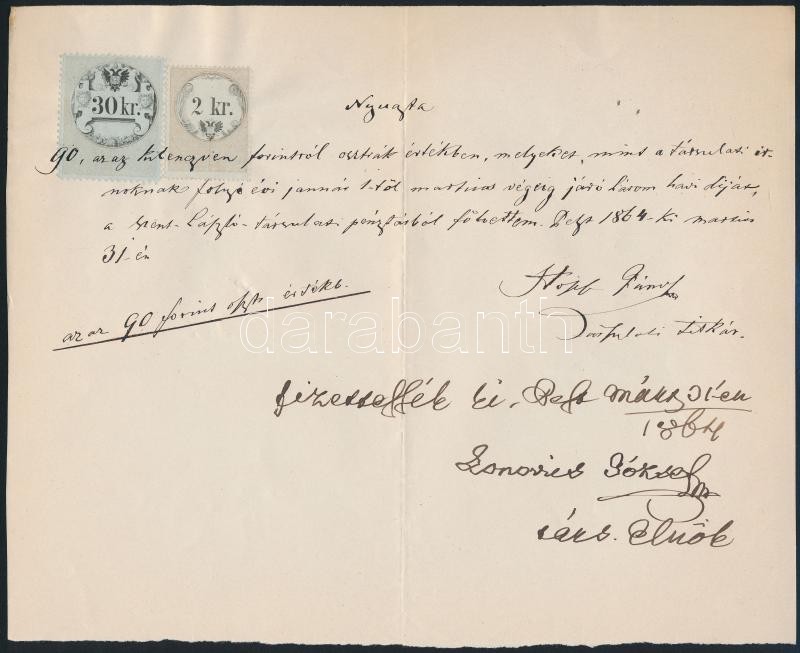 30 kr.
2 kr.
Nyugta
90, azaz kilenczven forintról osztrák értékben, melyeket, mint a társulati ir-
noknak folyó évi január 1-től martius végeig járó három havi díját,
a szent-László-társulati pénztárból fölvettem. Pest 1864-ki martius
31-én
azaz 90 forint oszt. értékb.
János
Társulati titkár.
fizettessék ki. Pest márs 31-én
1864
Lonovics József
társ. Elnök
darabanth